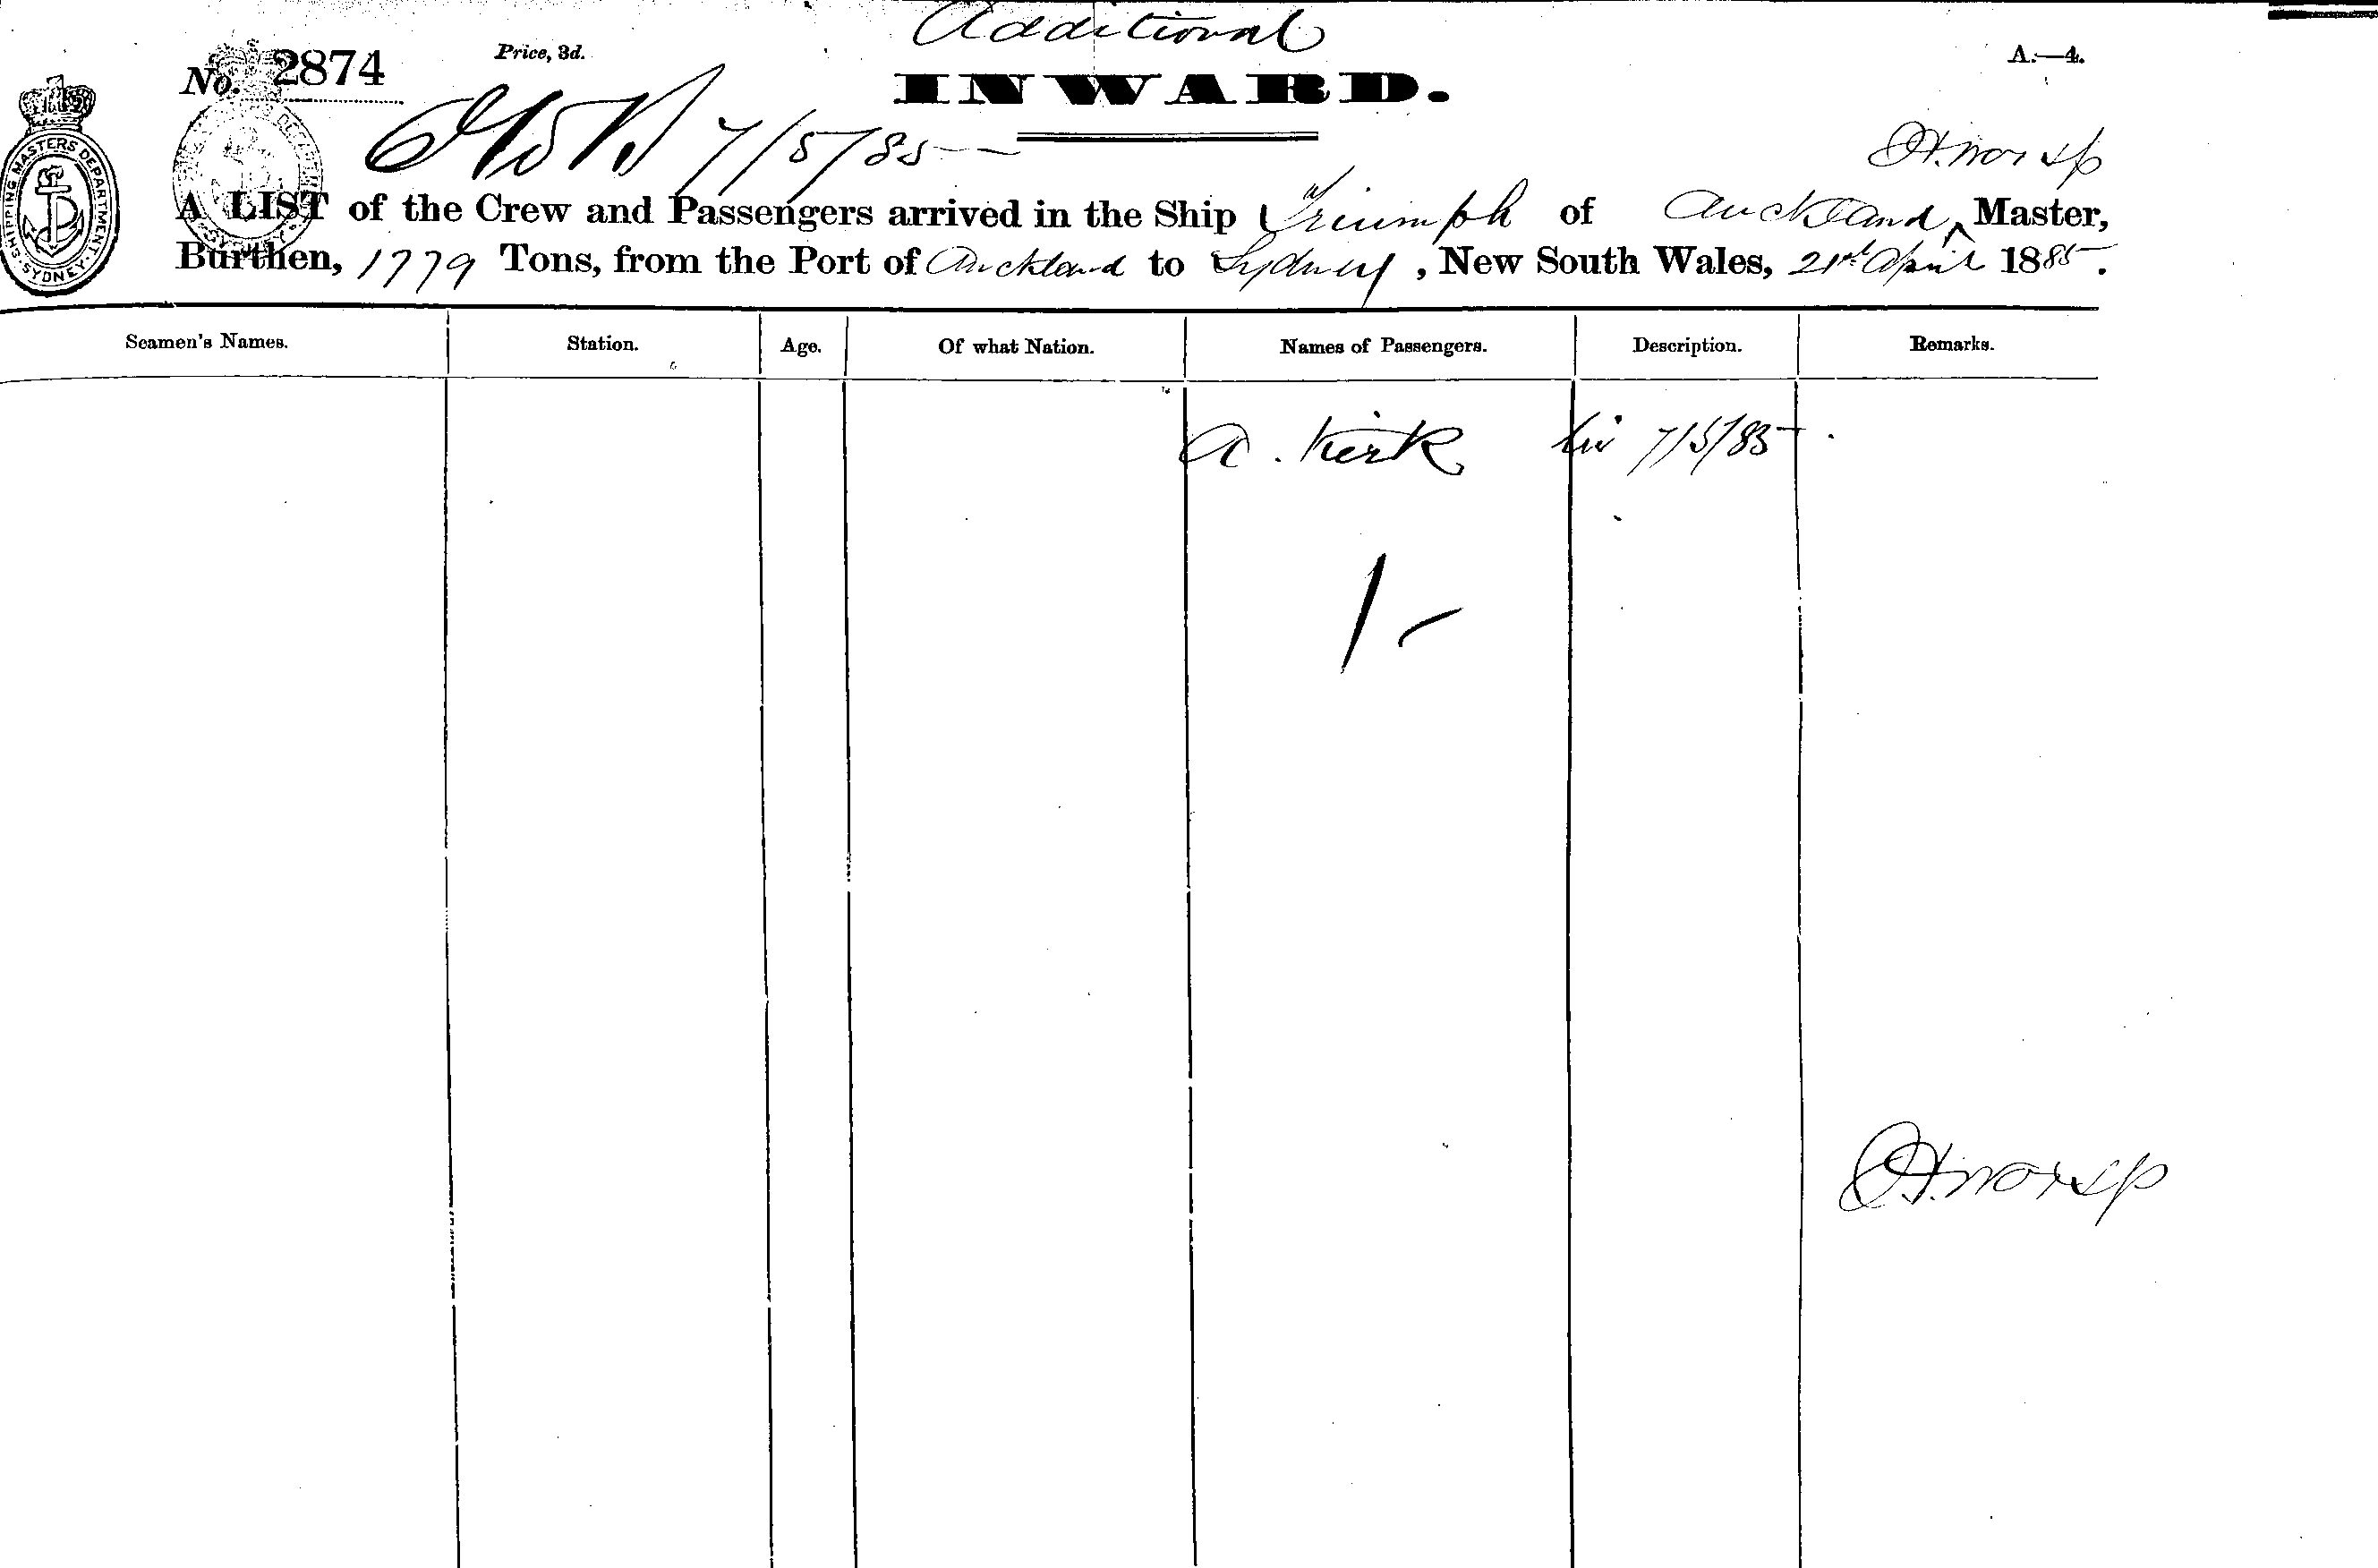 Additional
No. 2874
Price, 3d.
A.—4.
INWARD.
7/5/85
H. Worsp
A LIST of the Crew and Passengers arrived in the Ship Triumph of Auckland, Master,
Burthen, 1779 Tons, from the Port of Auckland to Sydney, New South Wales, 21st April 1885.
SHIPPING MASTERS DEPARTMENT. SYDNEY.
Seamen's Names. Station. Age. Of what Nation. Names of Passengers. Description. Remarks.
A. Kirk 7/5/85.
1 -
H. Worsp